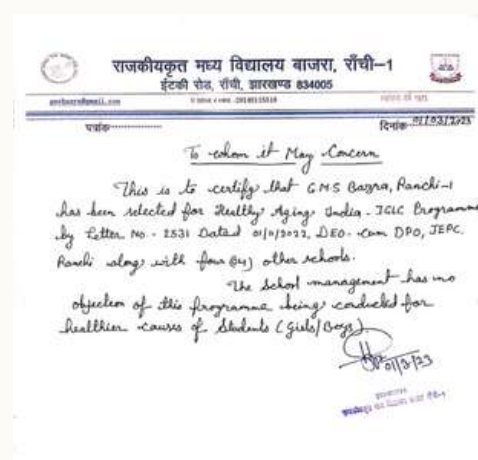 राजकीयकृत मध्य विद्यालय बाजरा, राँची–1
ईटकी रोड, राँची, झारखण्ड 834005
पत्रांक
दिनांक 01/03/2023
To whom it May Concern
This is to certify that G.M.S Bazra, Ranchi-1
has been selected for Healthy Aging India - IGLC Programme
by Letter No. - 2531 Dated DEO - Cum DPO, JEPC,
Ranchi along with four (04) other schools.
The School management has no
objection of this programme being conducted for
healthier causes of Students (Girls/Boys).
01/3/23